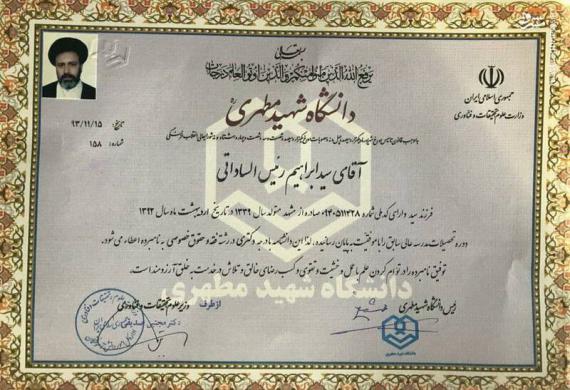 بسمه تعالی
یرفع الله الذین آمنوا منکم والذین اوتوا العلم درجات
جمهوری اسلامی ایران
وزارت علوم تحقیقات و فناوری
دانشگاه شهید مطهری
تاریخ: ۹۳/۱۱/۱۵
شماره: ۱۵۸
آقای سید ابراهیم رئیس الساداتی
فرزند سید دارای کد ملی شماره ۰۹۴۰۵۱۱۲۲۸ صادره از مشهد متولد سال ۱۳۳۹ در تاریخ اردیبهشت ماه سال ۱۳۹۲
دوره تحصیلات مدرسه عالی سابق را با موفقیت به پایان رسانده، لذا این دانشنامه با درجه دکتری در رشته فقه و حقوق خصوصی به نامبرده اعطاء می شود.
توفیق نامبرده را در توأم کردن علم با عمل و خشیت و تقوی و کسب رضای خالق و تلاش در خدمت به خلق آرزومند است.
دانشگاه شهید مطهری
رئیس دانشگاه شهید مطهری
از طرف وزیر علوم تحقیقات و فناوری
دکتر مجتبی صدیقی
دانشگاه شهید مطهری